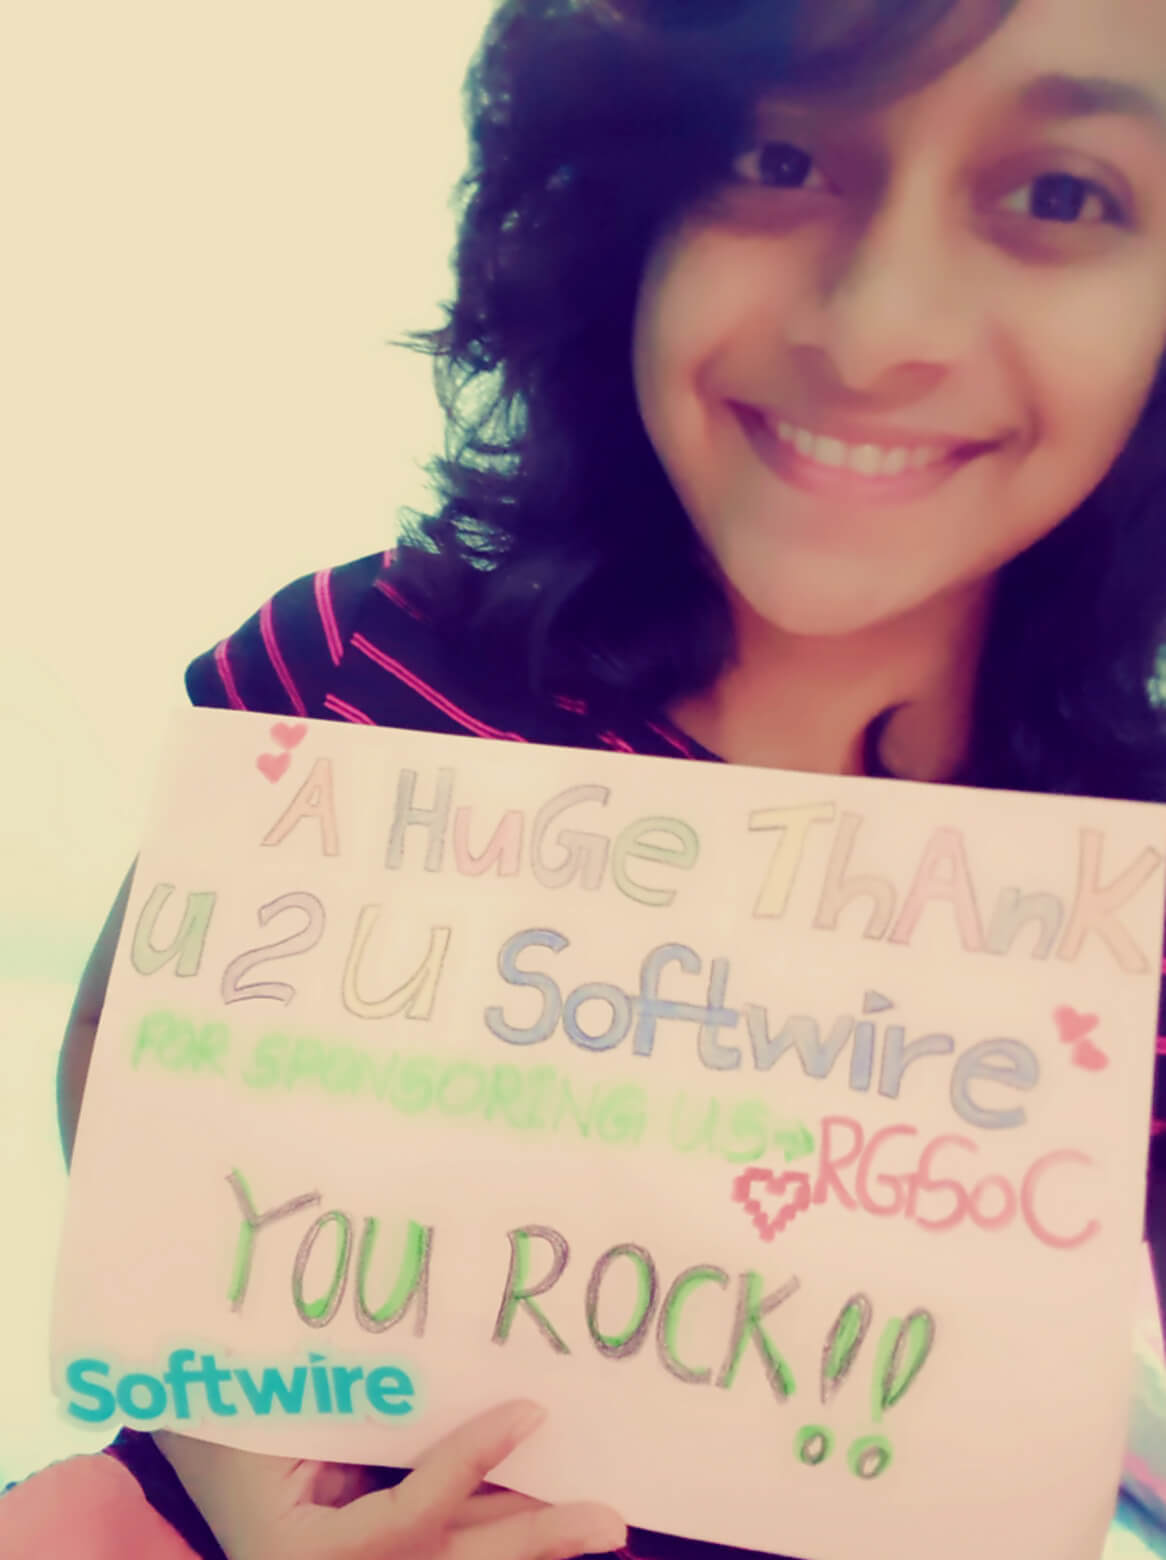 A HuGe ThAnK
U 2 U Softwire
FOR SPONSORING US → RGSoC
YOU ROCK!!
Softwire